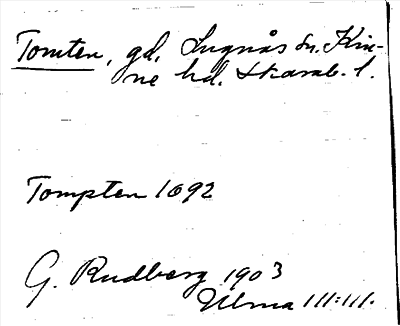 Tomten, gd, Lugnås sn. Kin-
ne hd. Skarab. l.
Tompten 1692
G. Rudberg 1903
Ulma 111:111.